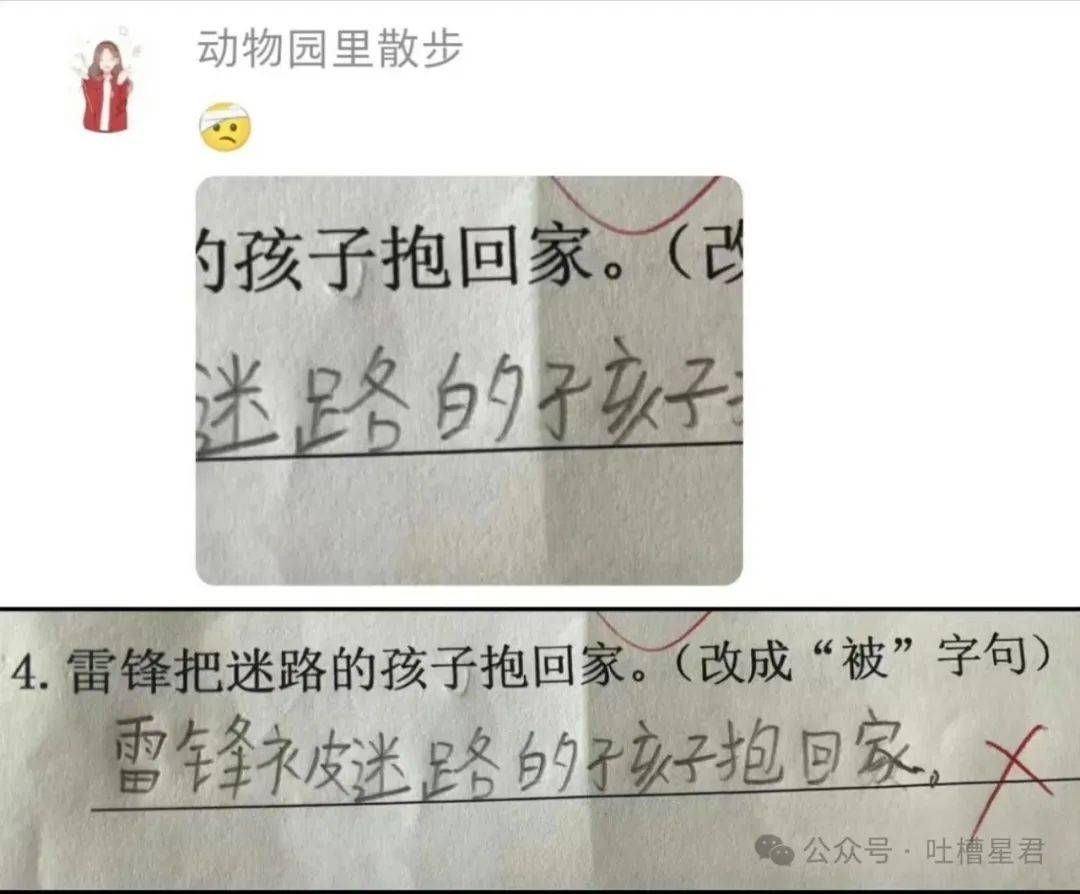 动物园里散步
的孩子抱回家。（改
迷路的孩子
4. 雷锋把迷路的孩子抱回家。（改成“被”字句）
雷锋被迷路的孩子抱回家。
公众号·吐槽星君